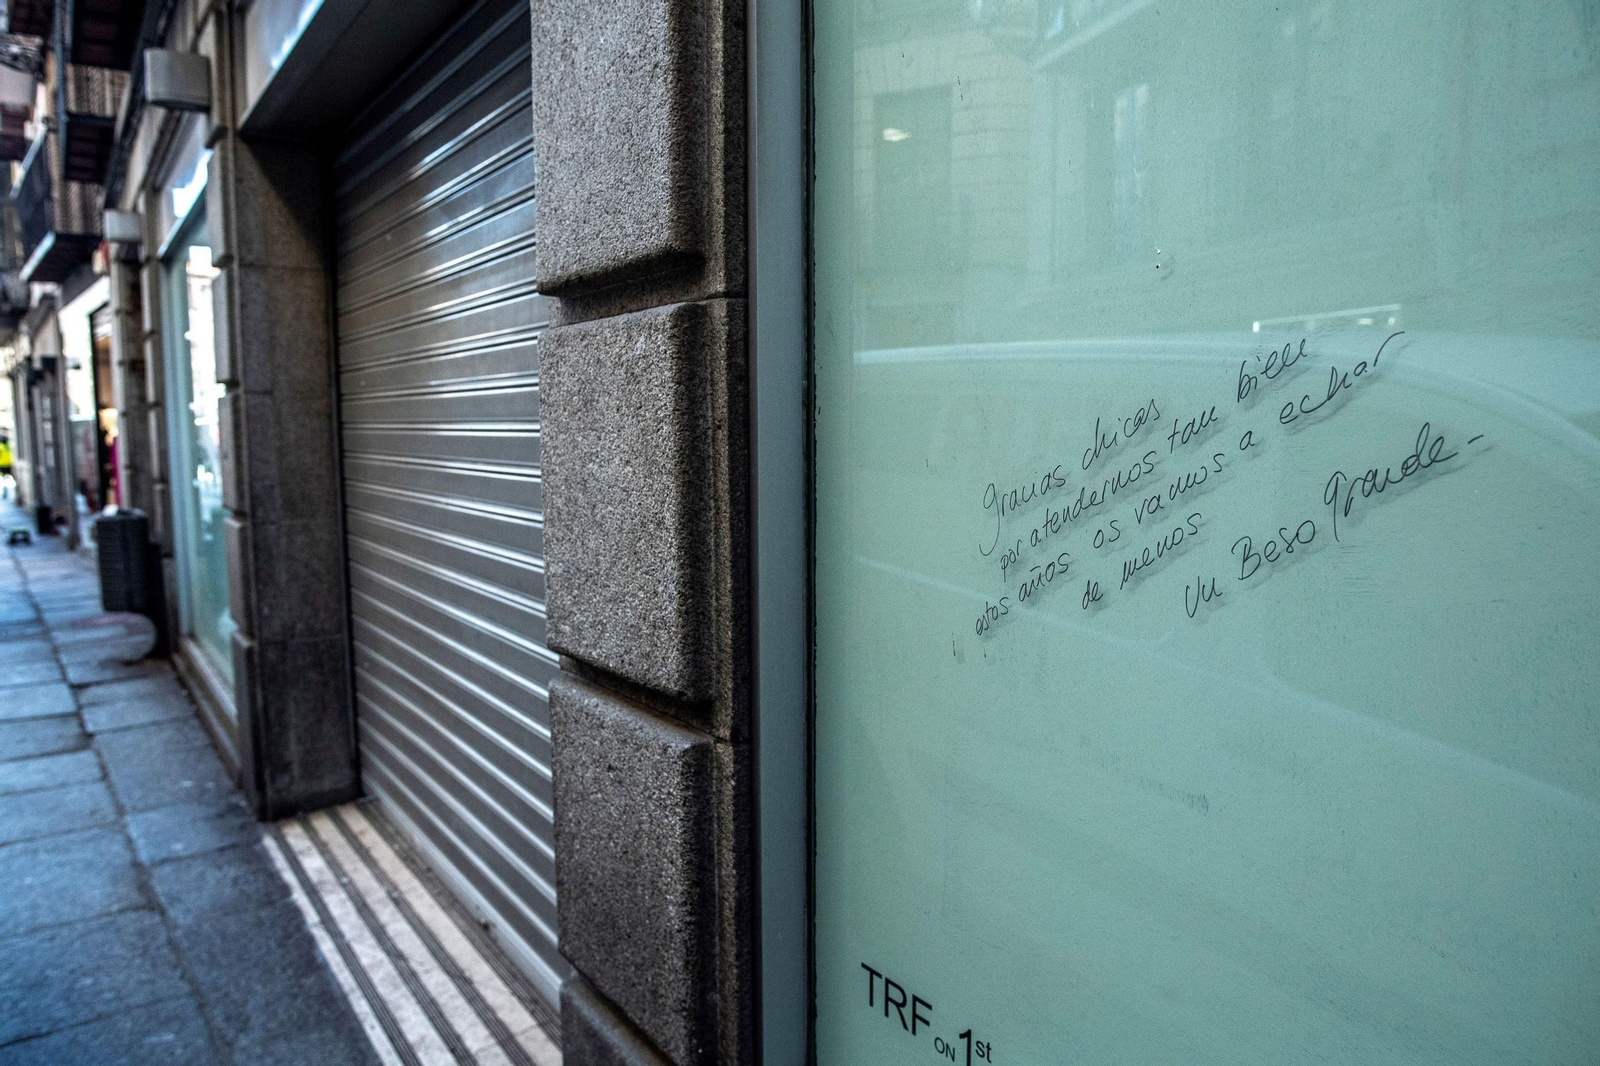 Gracias chicas
por atendernos tan bien
estos años os vamos a echar
de menos
Un Beso Grande-
TRF
ON 1st